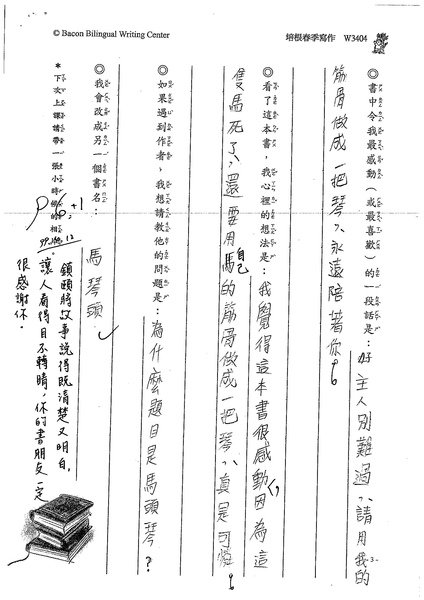 © Bacon Bilingual Writing Center
培根春季寫作 W3404
◎書中令我最感動(或最喜歡)的一段話是：好主人別難過，請用我的
筋骨做成一把琴，永遠陪著你。
◎看了這本書，我心裡的想法是：我覺得這本書很感動，因為這
隻馬死了，還要用自己的筋骨做成一把琴，真是可憐。
◎如果遇到作者，我想請教他的問題是：為什麼題目是馬頭琴？
◎我會改成另一個書名：馬琴頭
*下次上課請帶一張小時候的相
+1
99.
12
讓人看得目不轉睛，你的書朋友一定
很感謝你。